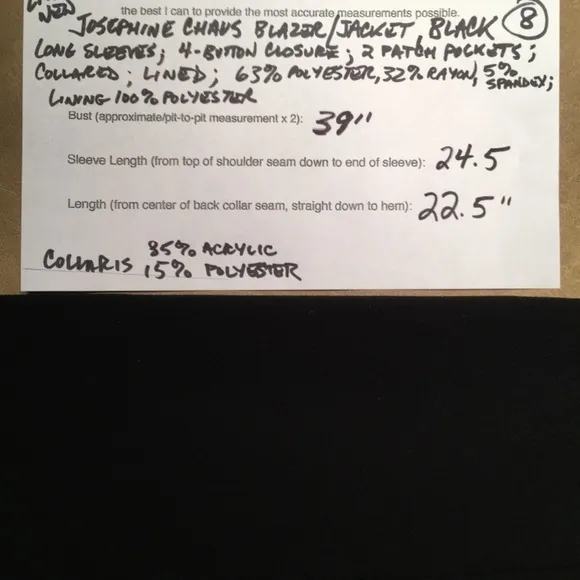 NEW
the best I can to provide the most accurate measurements possible.
JOSEPHINE CHAUS BLAZER/JACKET, BLACK 8
LONG SLEEVES; 4-BUTTON CLOSURE; 2 PATCH POCKETS;
COLLARED; LINED; 63% POLYESTER, 32% RAYON, 5% SPANDEX;
LINING 100% POLYESTER
Bust (approximate/pit-to-pit measurement x 2): 39"
Sleeve Length (from top of shoulder seam down to end of sleeve): 24.5
Length (from center of back collar seam, straight down to hem): 22.5"
COLLAR IS 85% ACRYLIC
15% POLYESTER